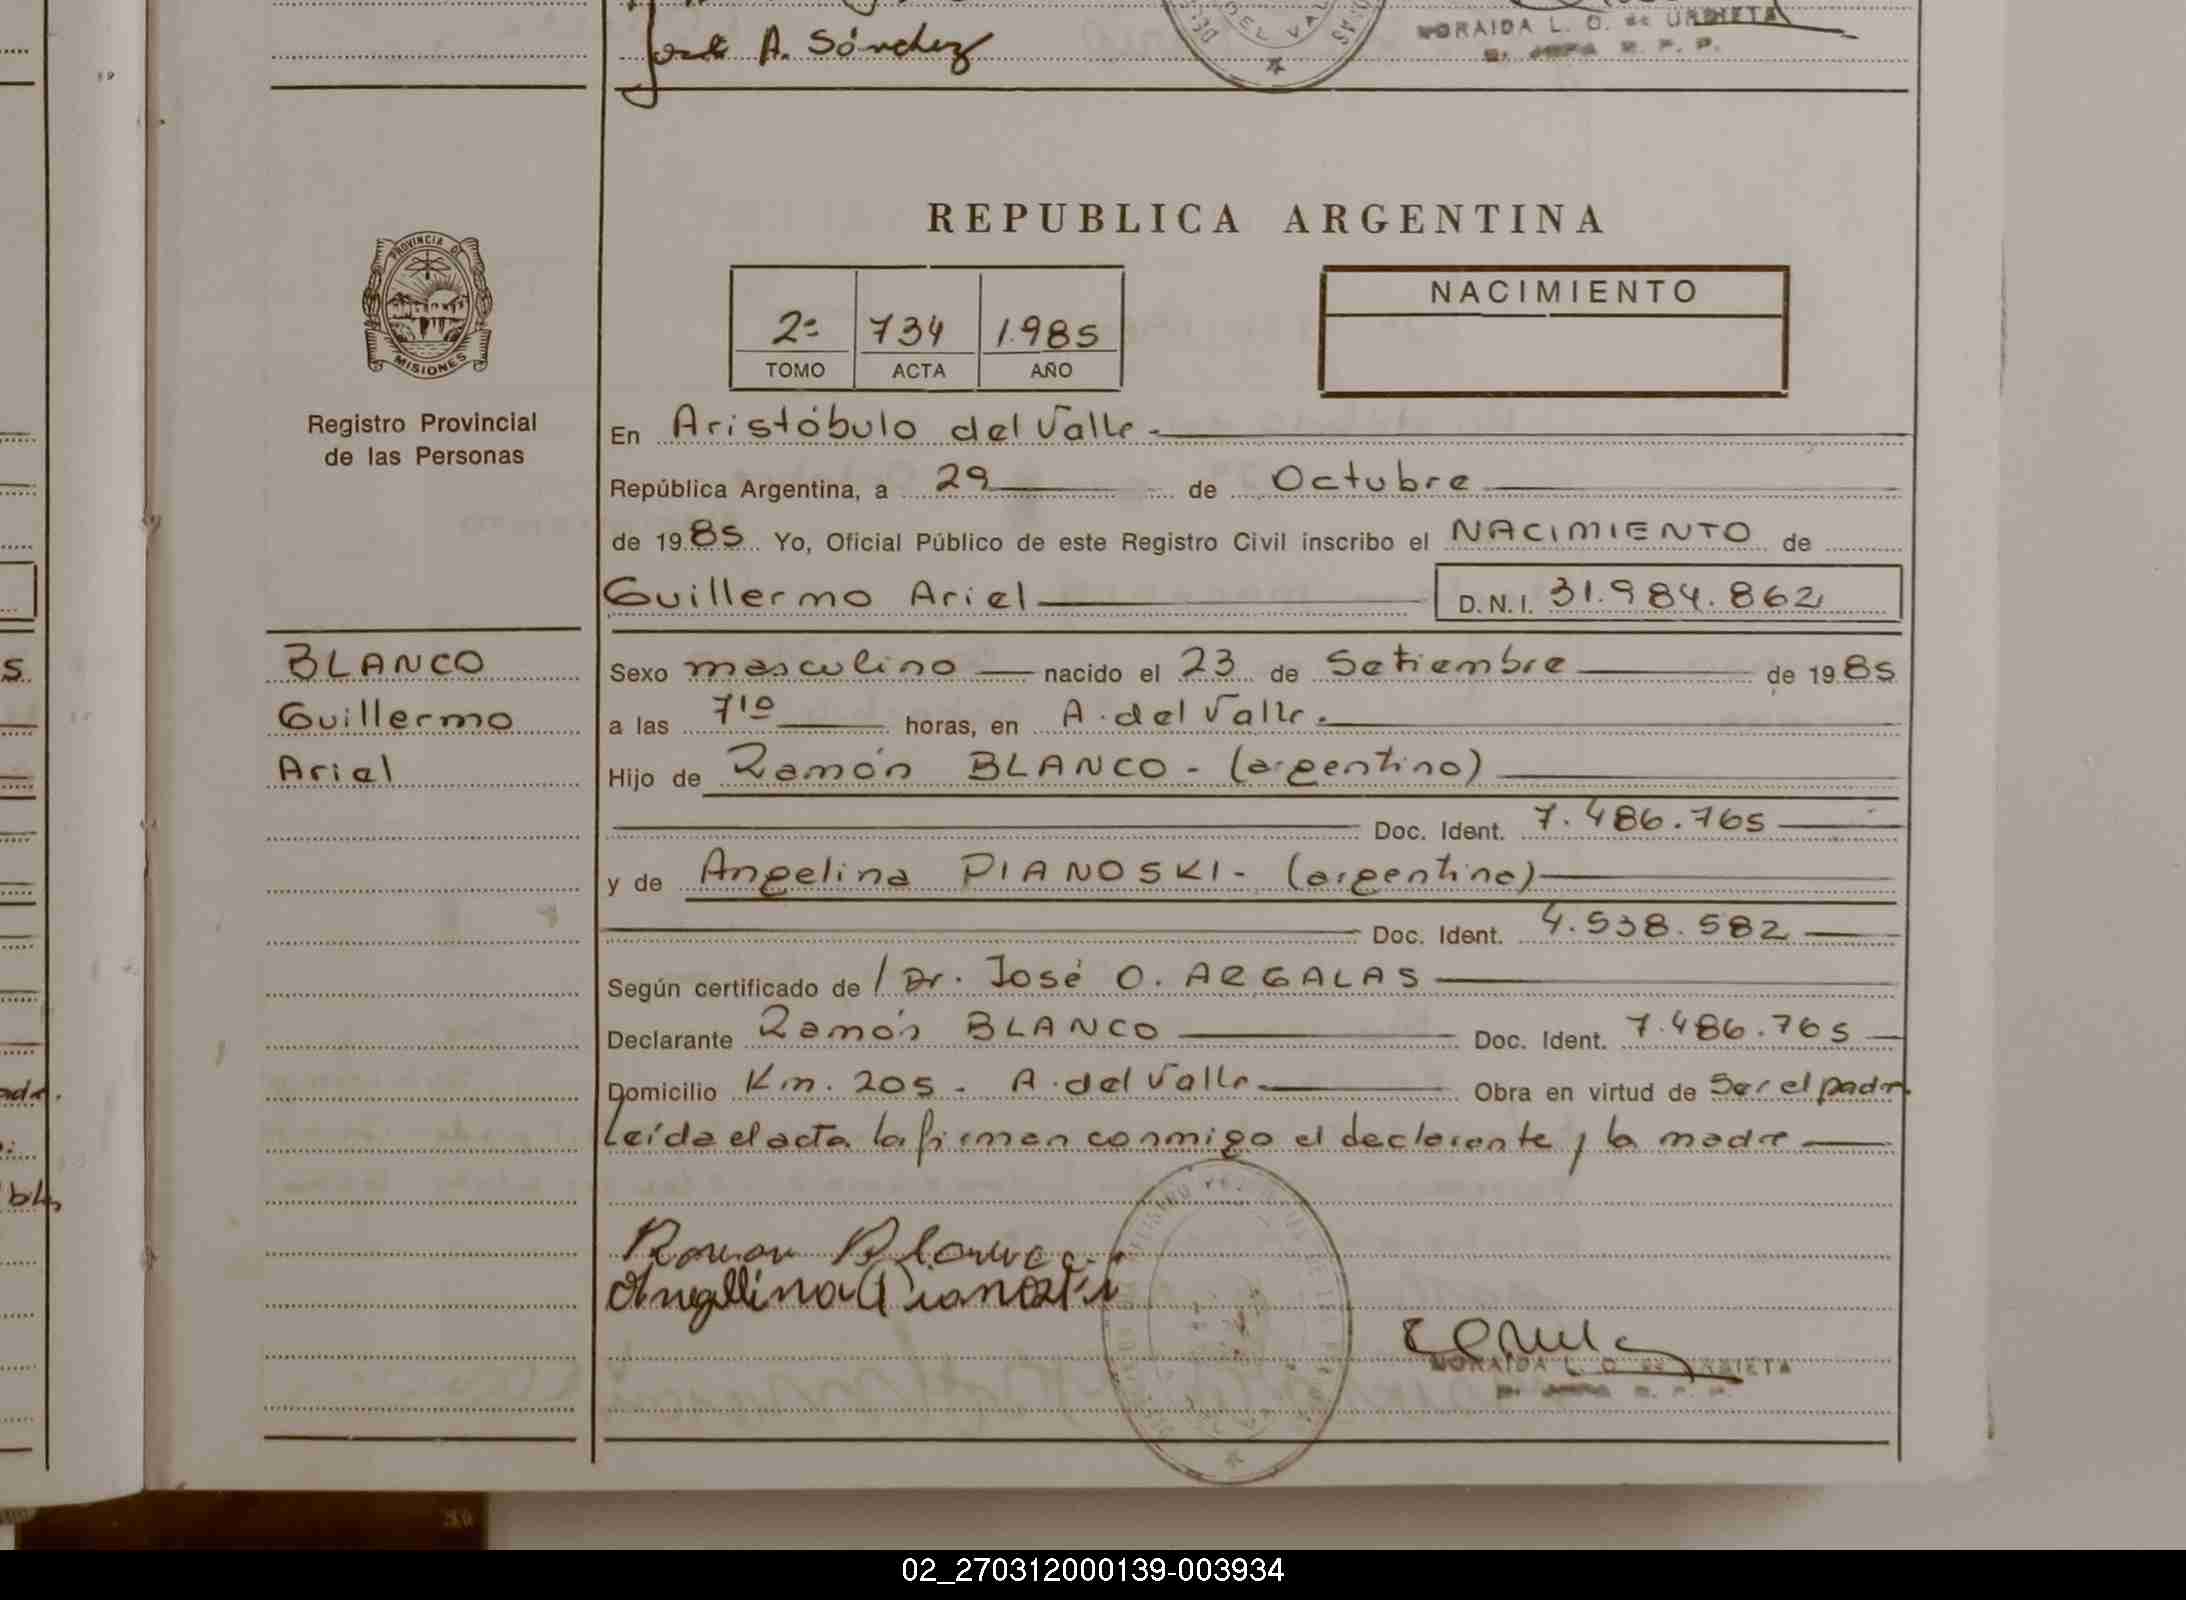 José A. Sánchez
DEL VAL
NORAIDA L. O. de URBIETA
R. P. P.
REPUBLICA ARGENTINA
PROVINCIA DE
MISIONES
2º 734 1.985
TOMO ACTA AÑO
NACIMIENTO
Registro Provincial
de las Personas
En Aristóbulo del Valle.
República Argentina, a 29 de Octubre
de 1985 Yo, Oficial Público de este Registro Civil inscribo el NACIMIENTO de
Guillermo Ariel D.N.I. 31.984.862
BLANCO
Guillermo
Ariel
Sexo masculino nacido el 23 de Setiembre de 1985
a las 710 horas, en A. del Valle.
Hijo de Ramón BLANCO - (argentino)
Doc. Ident. 7.486.765
y de Angelina PIANOSKI - (argentina)
Doc. Ident. 4.538.582
Según certificado de / Dr. José O. ARGALAS
Declarante Ramón BLANCO Doc. Ident. 7.486.765
Domicilio Km. 205 - A. del Valle Obra en virtud de Ser el padre
Leída el acta la firman conmigo el declarante y la madre
Ramon Blanco
Angellina Pianoski
NORAIDA L. O. de URBIETA
R. P. P.
02_270312000139-003934